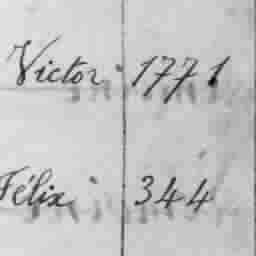 Victor 1771
Félix 344